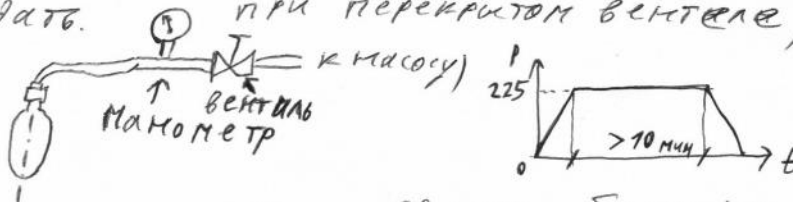 дать. при перекрытом вентеле,
к насосу)
вентиль
манометр
P
225
>10 мин
0
t